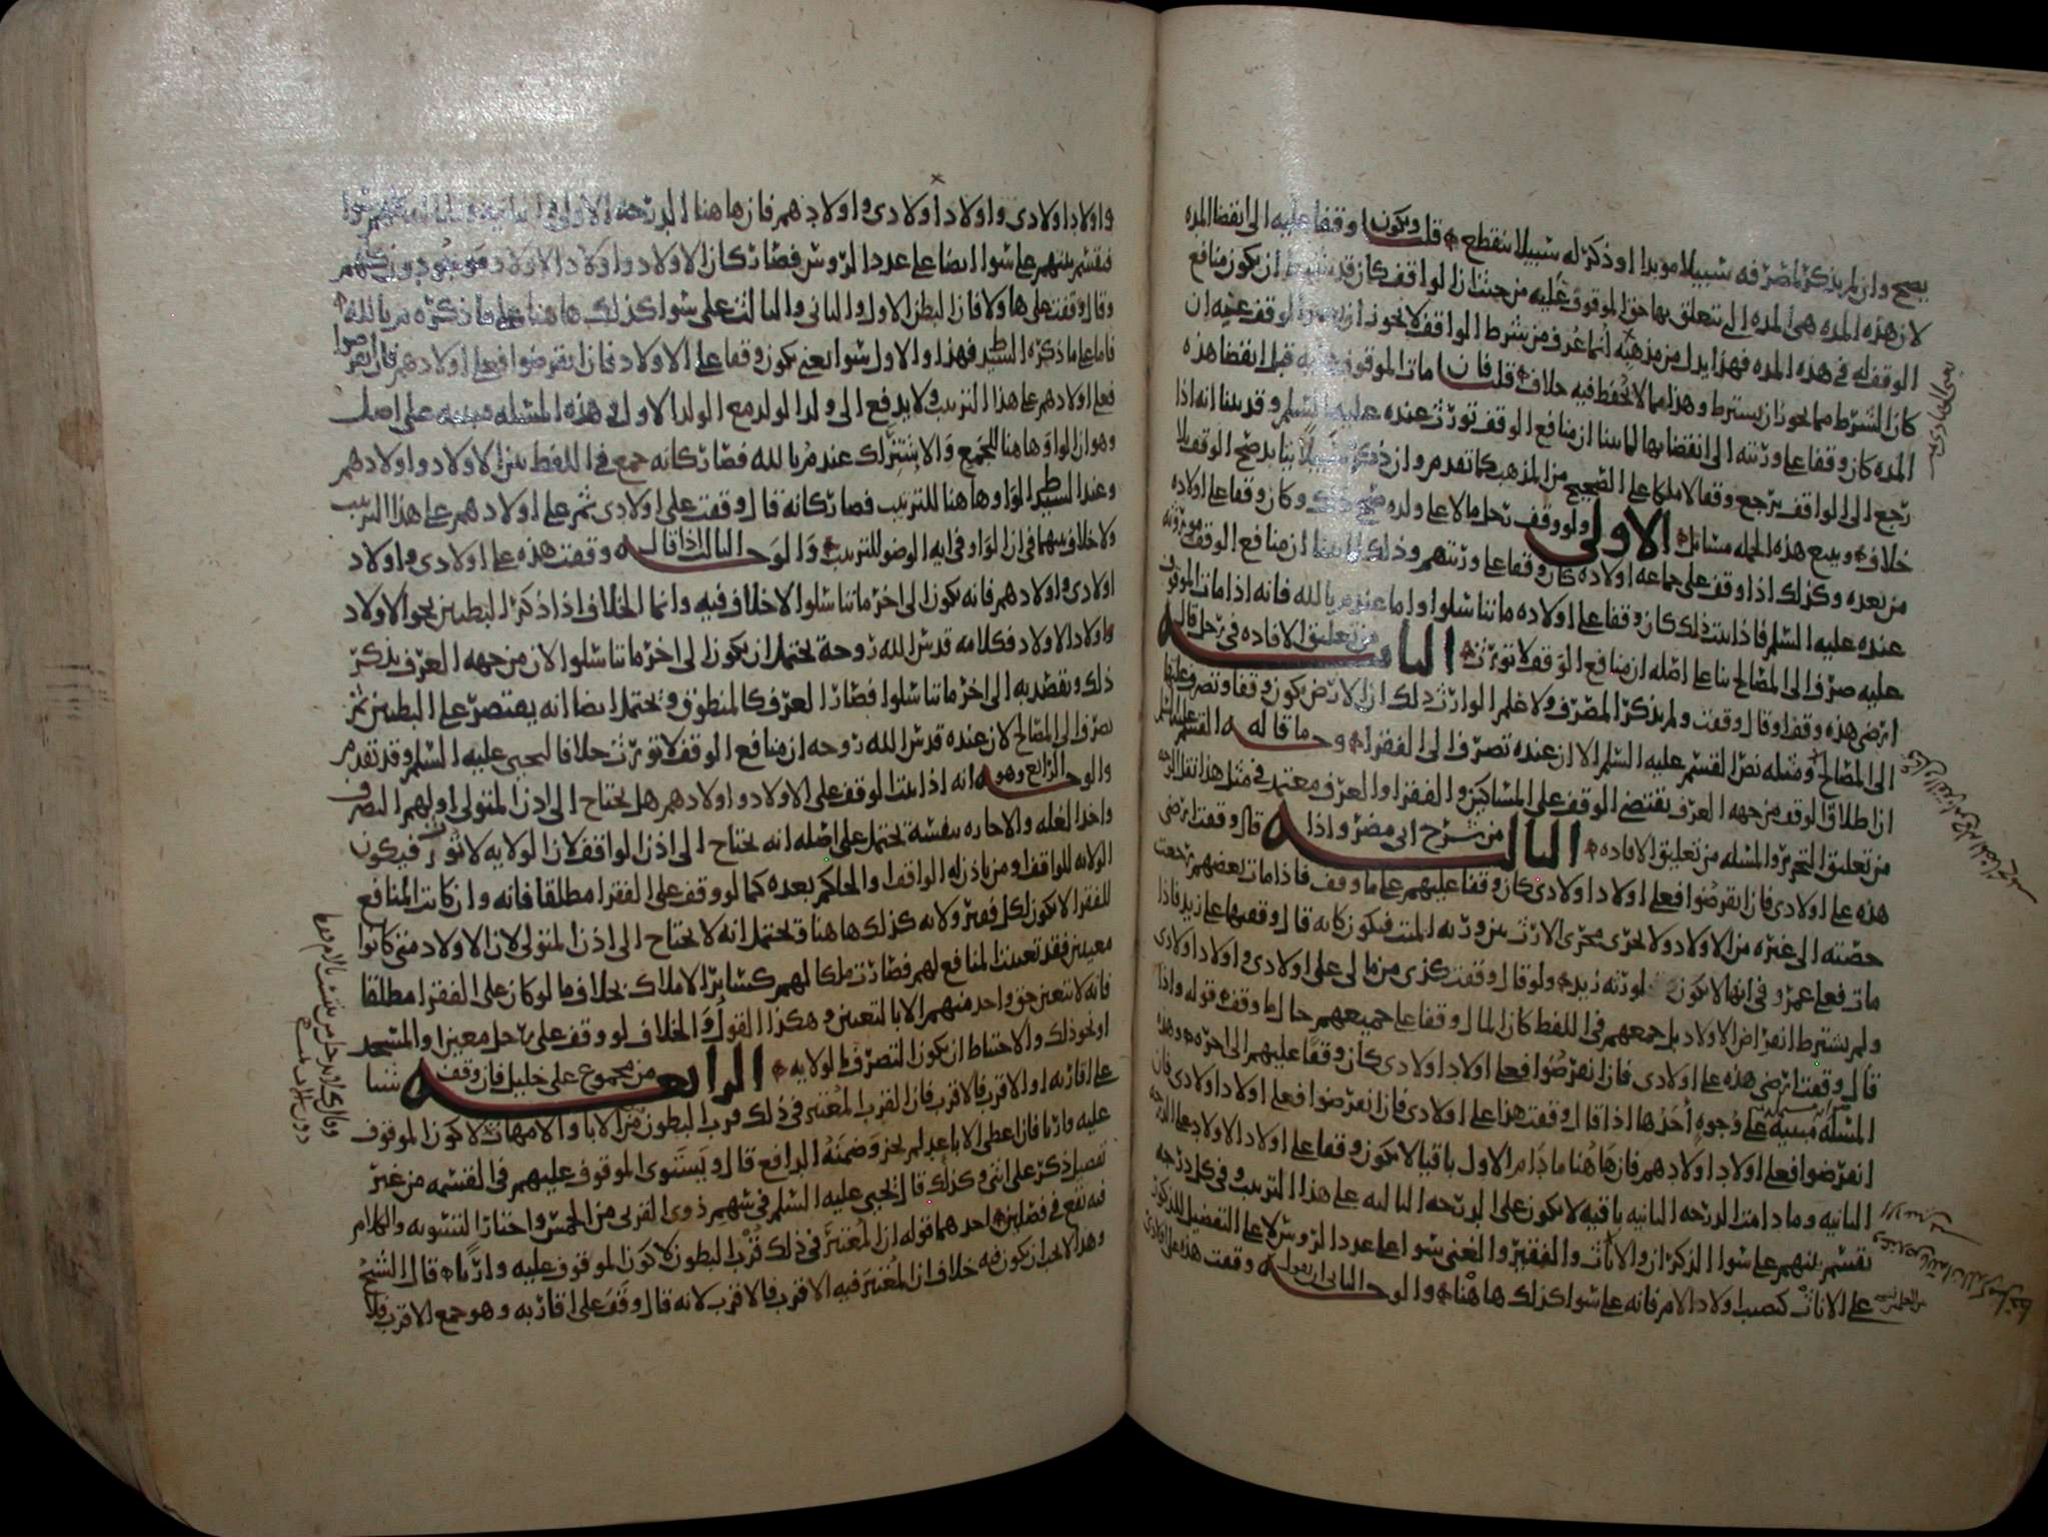 يصح وان لم يذكر لمصرفه سبيلا مؤبدا او ذكر له سبيلا ينقطع قلت ويكون وقفا عليه الى انقضا المده
لان هذه المده هى المده التى تتعلق بها حق الموقوف عليه من حيث ان الواقف كان قد شرط ان يكون منافع
الوقف له فى هذه المده فهذا يدل من مذهبه انما عرف من شرط الواقف لا يجوز
كان الشرط مما يجوز ان يشترط وهذا مما لا يحفظ فيه خلاف قلت فان مات الموقوف عليه قبل انقضا هذه
المده كان وقفا على ورثته الى انقضايها لما بينا ان منافع الوقف تورث عنده عليه السلم وقد بينا انه اذا
رجع الى الواقف يرجع وقفا لا ملكا على الصحيح من المذهب كما تقدم وان ذكر سبيلا يتابد صح الوقف بلا
خلاف ويتبع هذه الجمله مسائل الاولى ولو وقف رجل مالا على ولده صح ذلك وكان وقفا على اولاده
من بعده وكذلك اذا وقف على جماعه اولاده كان وقفا على ورثتهم وذلك لما بينا ان منافع الوقف موروثه
عنده عليه السلم فاذا ثبت ذلك كان وقفا على اولاده ما تناسلوا واما عند م بالله فانه اذا مات الموقوف
عليه صرف الى المصالح بنا على اصله ان منافع الوقف لا تورث الثانيه من تعليق الافاده فى رجل قال
ارضى هذه وقف او قال وقفت ولم يذكر المصرف ولا علم الوارث ذلك ان الارض يكون وقفا وتصرف غلتها
الى المصالح ومثله نص القسم عليه السلم الا ان عنده تصرف الى الفقرا وجه ما قاله القسم عليه السلم
ان اطلاق الوقف من جهه العرف يقتضى الوقف على المساكين والفقرا والعرف معتبر فى مثل هذا
من تعليق التحرير والمسله من تعليق الافاده الثالثه من شرح ابى مضر واذا قال وقفت ارضى
هذه على اولادى فان انقرضوا فعلى اولاد اولادى كان وقفا عليهم على ما وقف فاذا مات بعضهم رجعت
حصته الى غيره من الاولاد ولا يجرى مجرى الارث بين ورثه الميت فيكون كانه قال وقفتها على زيد فاذا
مات فعلى عمرو فى انها لا يكون لورثه زيد ولو قال وقفت كذى من مالى على اولادى واولاد اولادى
ولم يشترط انقراض الاولاد بل جمعهم فى اللفظ كان المال وقفا على جميعهم حال ما وقف قوله واذا
قال وقفت ارضى هذه على اولادى فان انقرضوا فعلى اولاد اولادى كان وقفا عليهم الى اخره وهذه
المسله مبنيه على وجوه احدها اذا قال وقفت هذا على اولادى فان انقرضوا فعلى اولاد اولادى فان
انقرضوا فعلى اولاد اولادهم فان هاهنا ما دام الاول باقيا لا يكون وقفا على اولاد الاولاد
الثانيه وما دامت الدرجه الثانيه باقيه لا يكون على الدرجه الثالثه على هذا الترتيب وفى كل درجه
يقسم بينهم على سوا الذكران والاناث والفقير والغنى سوا على عدد الروس لا على التفضيل للذكور
على الاناث كنصيب اولاد الام فانه على سوا كذلك هاهنا والوجه الثانى ان يقول وقفت هذه على اولادى
واولاد اولادى واولاد اولاد اولادى واولادهم فان هاهنا الدرجه الاولى
فيقسم بينهم على سوا ايضا على عدد الروس فصار كان الاولاد واولاد الاولاد موجودون كلهم
وقال وقفت على هاولا فان البطن الاول والثانى والثالث على سوا كذلك هاهنا على ما ذكره م بالله
فاما على ما ذكره السيد ط فهذا والاول سوا يعنى يكون وقفا على الاولاد فان انقرضوا فعلى اولادهم فان انقرضوا
فعلى اولادهم على هذا الترتيب ولا يدفع الى ولد الولد مع الولد الاول وهذه المسله مبنيه على اصل
وهو ان الواو هاهنا للجمع والاشتراك عند م بالله فصار كانه جمع فى اللفظ بين الاولاد واولادهم
وعند السيد ط الواو هاهنا للترتيب فصار كانه قال وقفت على اولادى ثم على اولادهم على هذا الترتيب
ولا خلاف بينهما فى ان الواو فى ايه الوضو للترتيب والوجه الثالث اذا قال وقفت هذه على اولادى واولاد
اولادى واولادهم فانه يكون الى اخر ما تناسلوا لا خلاف فيه وانما الخلاف اذا ذكر البطنين نحو الاولاد
واولاد الاولاد فكلامه قدس الله روحه يحتمل ان يكون الى اخر ما تناسلوا لان من جهه العرف يذكر
ذلك ويقصد به الى اخر ما تناسلوا فصار العرف كالمنطوق ويحتمل ايضا انه يقتصر على البطنين ثم
تصرف الى المصالح لان عنده قدس الله روحه ان منافع الوقف لا تورث خلافا ليحيى عليه السلم وقد تقدم
والوجه الرابع وهو انه اذا ثبت الوقف على الاولاد واولادهم هل يحتاج الى اذن المتولى او لهم التصرف
واخذ الغله والاجاره بنفسه يحتمل على اصله انه يحتاج الى اذن الواقف لان الولايه لا تورث فيكون
الولايه للواقف ومن ياذن له الواقف او الحاكم بعده كما لو وقف على الفقرا مطلقا فانه وان كانت المنافع
للفقرا لا يكون لكل فقير ولايه كذلك هاهنا ويحتمل انه لا يحتاج الى اذن المتولى لان الاولاد متى كانوا
معينين فقد تعينت المنافع لهم فصارت ملكا لهم كساير الاملاك بخلاف ما لو كان على الفقرا مطلقا
فانه لا يتعين حق واحد منهم الا بالتعيين وهكذا القول والخلاف لو وقف على رجل معين او المسجد
او نحو ذلك والاحتياط ان يكون التصرف الى الولايه الرابعه من مجموع على خليل فان وقف شيا
على اقاربه او الاقرب فالاقرب فان القرب المعتبر فى ذلك قرب البطون من الابا والامهات لا كون الموقوف
عليه وارثا فان اعطى الابعد لم يجز وضمنه الدافع قال ويستوى الموقوف عليهم فى القسمه من غير
تفصيل ذكر على انثى وكذلك قال يحيى عليه السلم فى سهم ذوى القربى من الخمس واختار التسويه والكلام
فيه يقع فى فصلين احدهما قوله ان المعتبر فى ذلك قرب البطون لا كون الموقوف عليه وارثا قال الشيخ
وهذا لا يجب ان يكون فيه خلاف ان المعتبر فيه الاقرب فالاقرب لانه قال وقف على اقاربه وهو جمع الاقرب